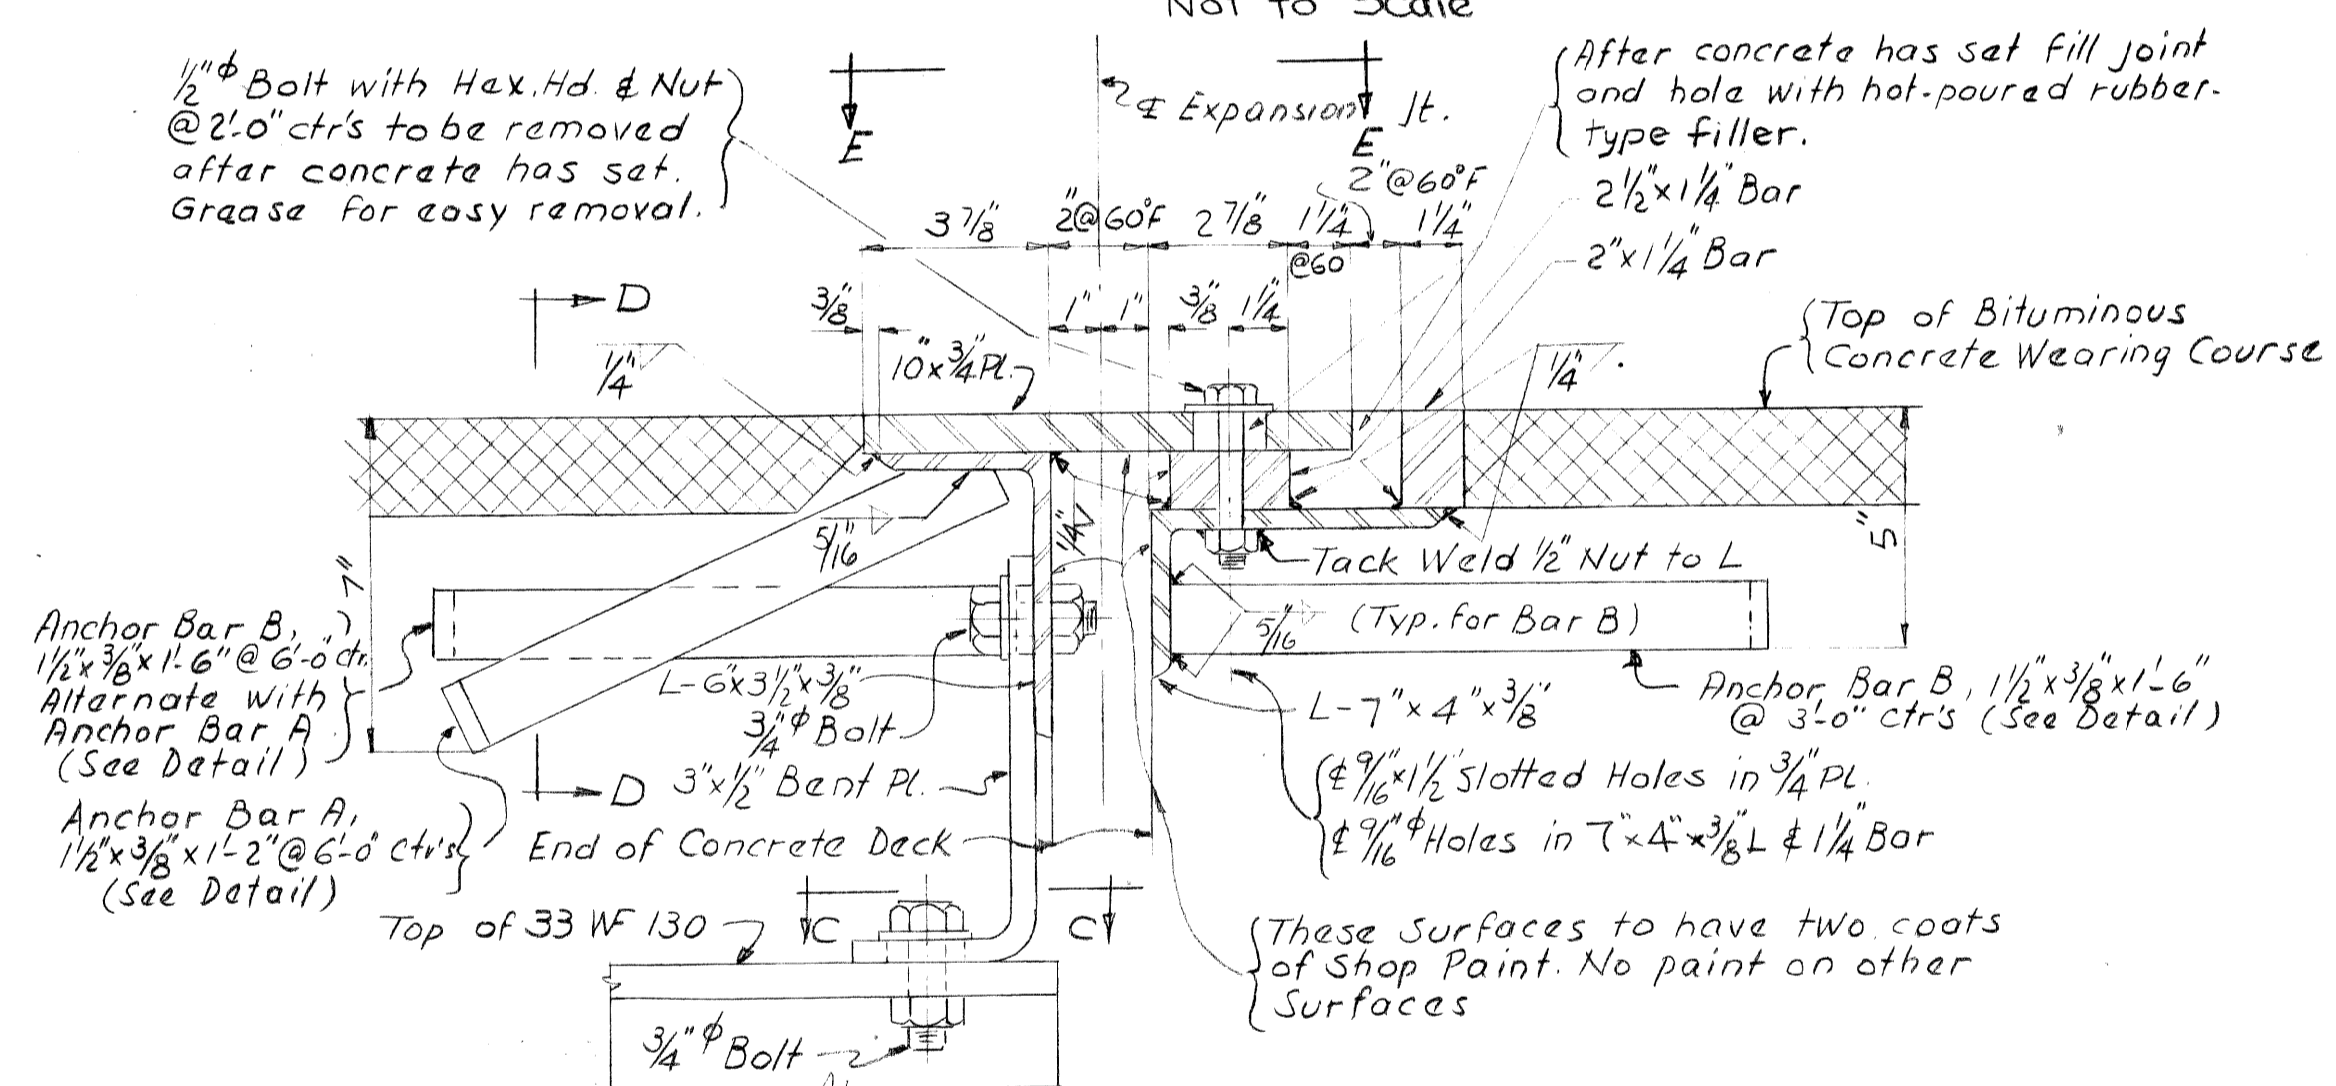 Not to Scale
1/2"ϕ Bolt with Hex. Hd. & Nut
@ 2'-0" ctr's to be removed
after concrete has set.
Grease for easy removal.
E
℄ Expansion Jt.
E
After concrete has set fill joint
and hole with hot-poured rubber-
type filler.
2 1/2" x 1 1/4" Bar
2" x 1 1/4" Bar
3 7/8"
2" @ 60°F
2 7/8"
1 1/4"
@60
2" @ 60°F
1 1/4"
D
3/8"
1"
1"
3/8"
1 1/4"
1/4"
10" x 3/4" Pl.
1/4"
Top of Bituminous
Concrete Wearing Course
5/16"
1/4"
7"
5"
Tack Weld 1/2" Nut to L
5/16"
(Typ. for Bar B)
Anchor Bar B,
1 1/2" x 3/8" x 1'-6" @ 6'-0" ctr.
Alternate with
Anchor Bar A
(See Detail)
L-6" x 3 1/2" x 3/8"
3/4"ϕ Bolt
L-7" x 4" x 3/8"
Anchor Bar B, 1 1/2" x 3/8" x 1'-6"
@ 3'-0" ctr's (See Detail)
D
3" x 1/2" Bent Pl.
℄ 9/16" x 1 1/2" Slotted Holes in 3/4" PL.
℄ 9/16"ϕ Holes in 7" x 4" x 3/8" L & 1 1/4" Bar
Anchor Bar A,
1 1/2" x 3/8" x 1'-2" @ 6'-0" ctr's
(See Detail)
End of Concrete Deck
Top of 33 WF 130
C
C
These Surfaces to have two coats
of Shop Paint. No paint on other
Surfaces
3/4"ϕ Bolt